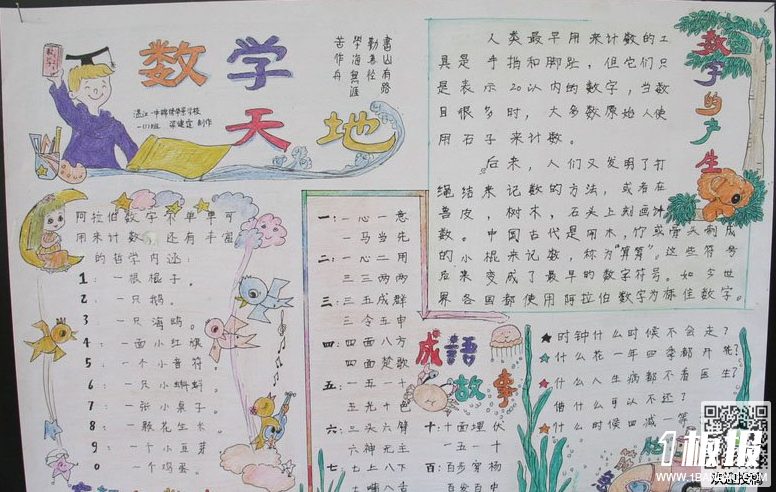 数学天地
書山有路
勤為径
學海無涯
苦作舟
人类最早用来计数的工
具是手指和脚趾，但它们只
是表示20以内的数字，当数
目很多时，大多数原始人使
用石子来计数。
后来，人们又发明了打
绳结来记数的方法，或者在
兽皮，树木，石头上刻画计
数。中国古代是用木，竹或骨头制成
的小棍来记数，称为“算筹”。这些符号
后来变成了最早的数字符号。如今世
界各国都使用阿拉伯数字为标准数字。
数字的产生
阿拉伯数字不单单可
用来计数，还有丰富
的哲学内涵：
1：一根棍子。
2：一只鹅。
3：一只海鸥。
4：一面小红旗
5：一个小音符。
6：一只小蝌蚪。
7：一张小桌子。
8：一颗花生米。
9：一个小豆芽。
0：一个鸡蛋。
一：一心一意
一马当先
二：一心二用
三三两两
三：三五成群
三令五申
四：四面八方
四面楚歌
五：五一十
五光十色
六：三头六臂
六神无主
七：七上八下
成語故事
十：十面埋伏
一五一十
百：百步穿杨
百发百中
时钟什么时候不会走？
什么花一年四季都开花？
什么人生病都不看医生？
借什么可以不还？
什么时候四减一等
1板报
WWW.1BANBAO.COM